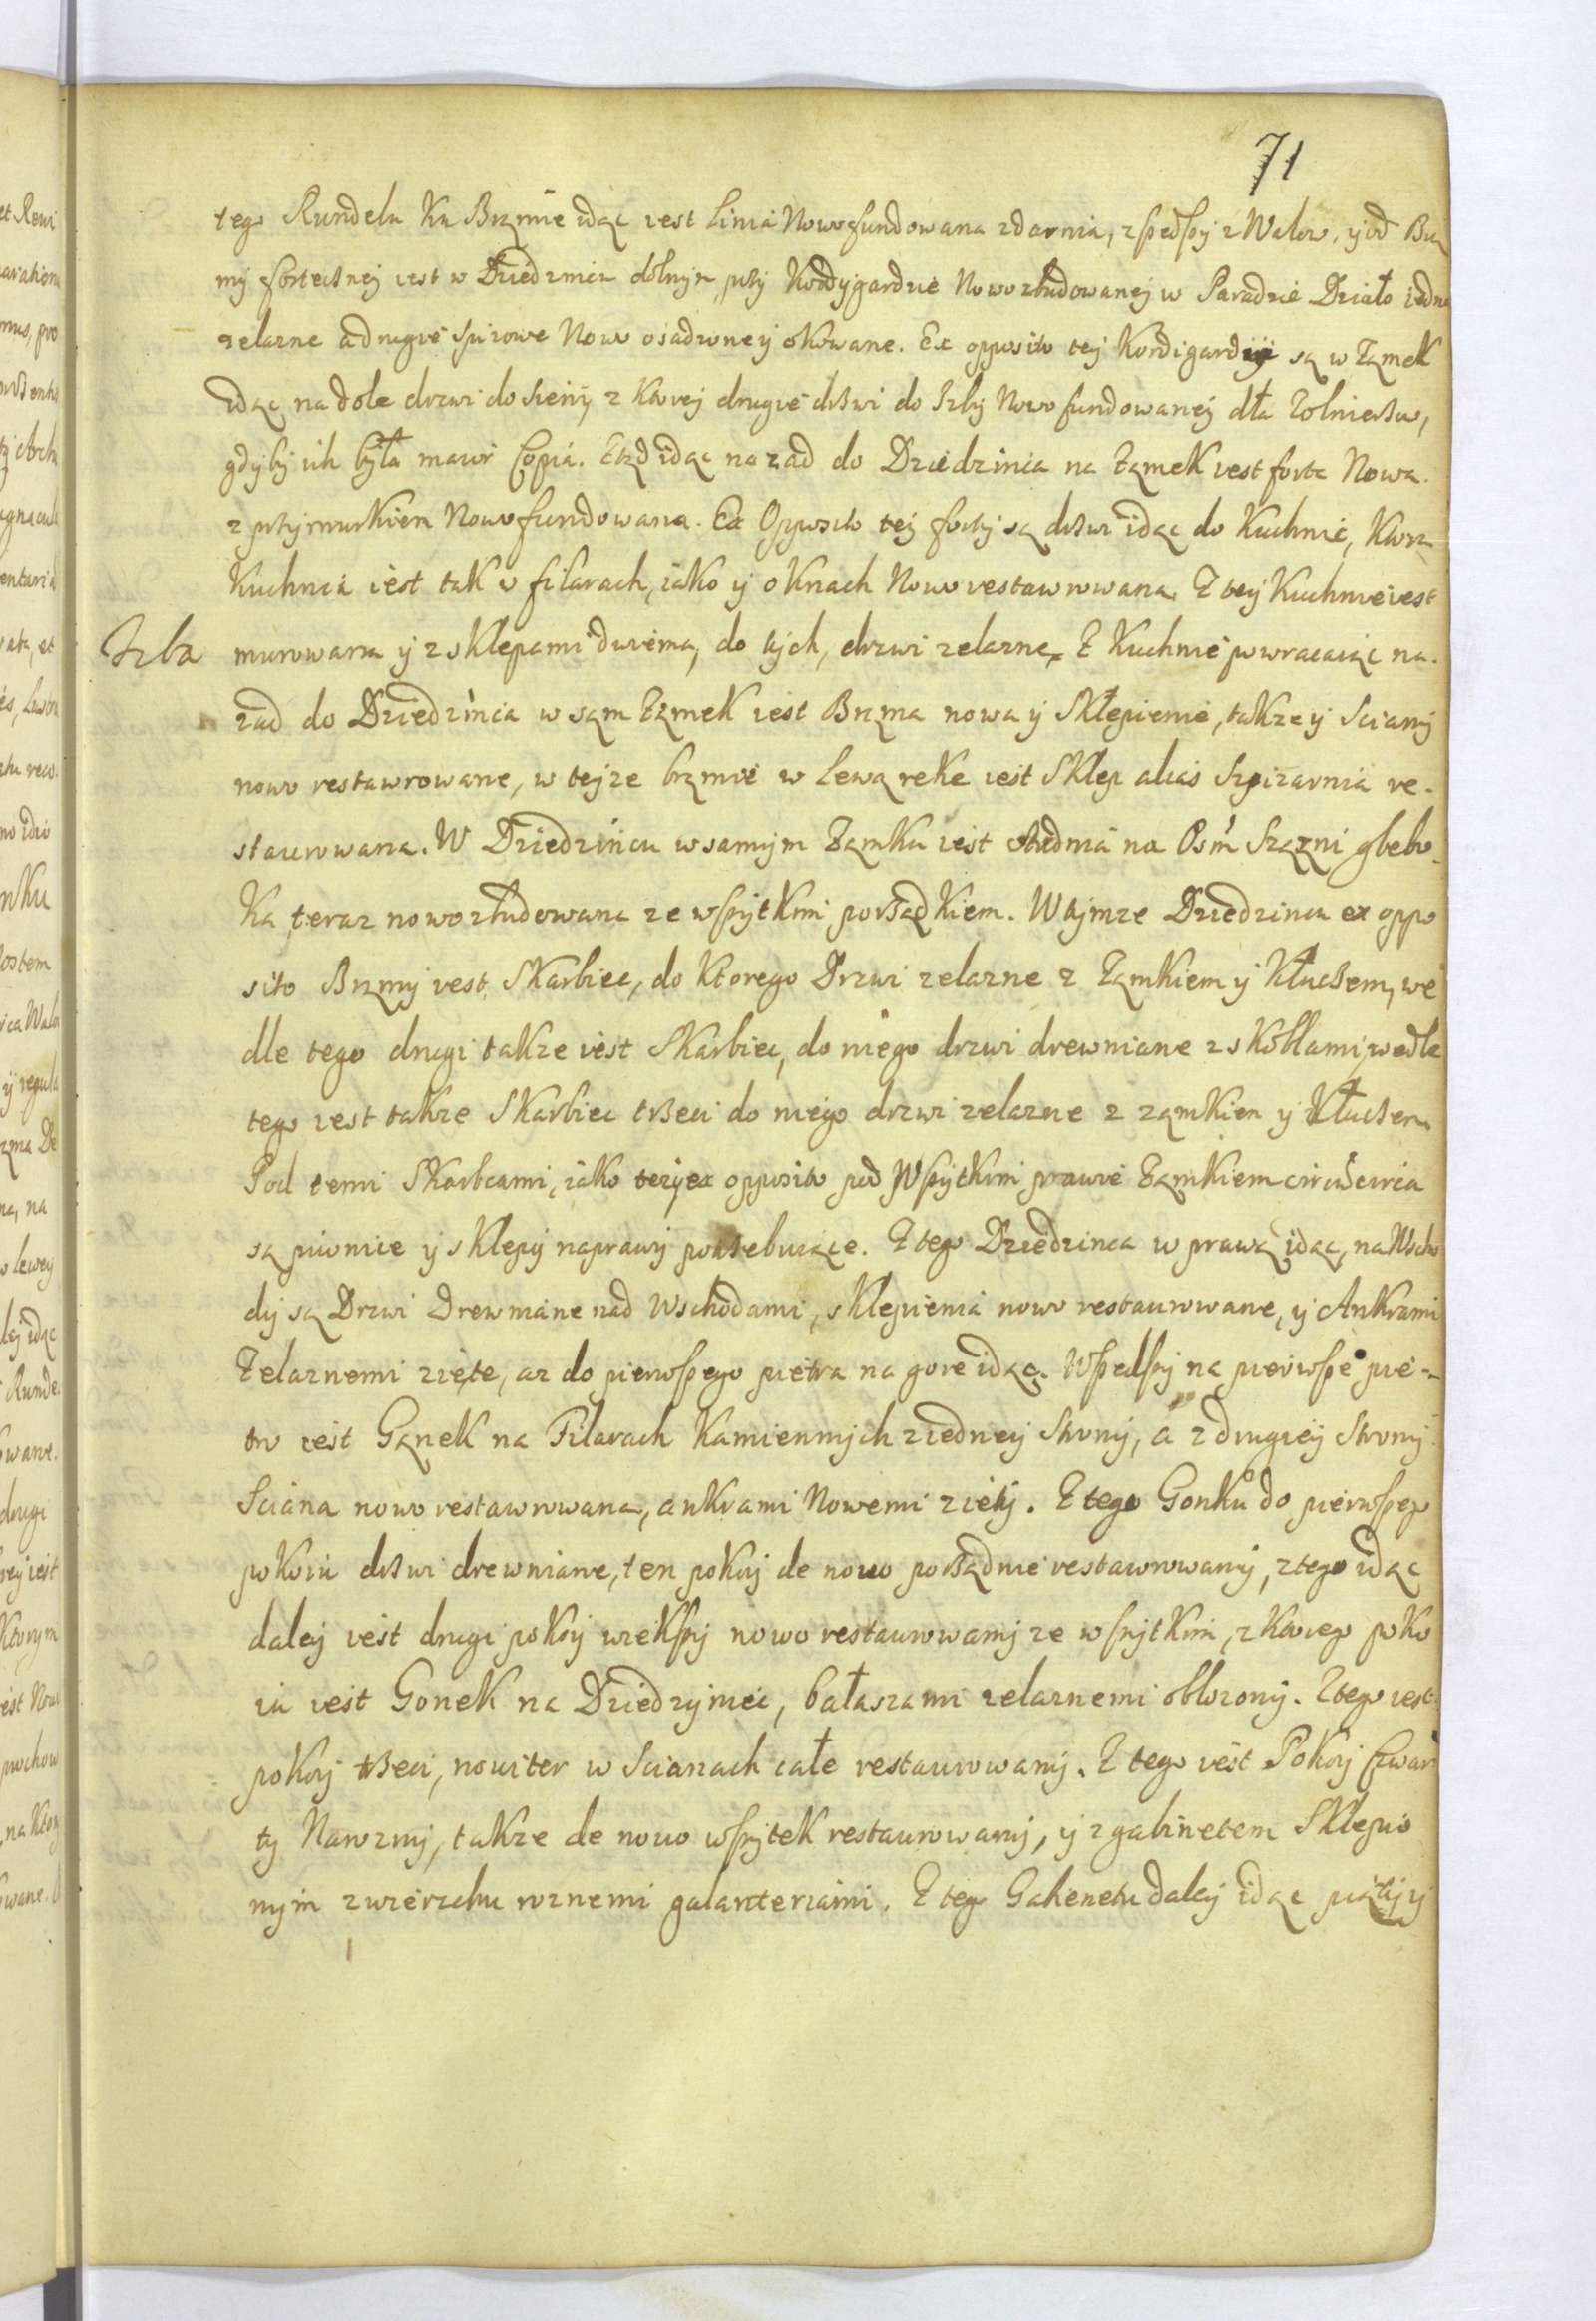 71
tego Rundelu ku Brzmie idąc iest Linia Nowofundowana zdarnia, zszedszy z Walow, y od Brą
my fortecznej iest w Dziedzincu dolnym, przy Kordygardzie Nowozbudowanej w Paradzie Działo iedne
zelazne a drugie spizowe Nowo osadzone y okowane. Ex opposito tej Kordigardyi są w Zamek
idąc na dole drzwi do sieni, z ktorej drugie drzwi do Izby Nowo fundowanej dla Zolnierzow,
gdyby ich była mawi Copia. Ztąd idąc nazad do Dziedzinca na Zamek iest forta Nowa
z przymurkiem Nowofundowana. Ex Opposito tej forty są drzwi idąc do Kuchnie, ktora
Kuchnia iest tak w filarach, iako y oknach Nowo restawrowana. Z tey Kuchnie iest
Izba murowana y z sklepami dwiema, do tych, drzwi zelazne. Z Kuchnie powracaiąc na-
zad do Dziedzinca w sam Zamek iest Brąma nowa y Sklepienie, takze y Sciany
nowo restawrowane, w tejze brąmie w lewą reke iest Sklep alias Szpizarnia re-
staurowana. W Dziedzińcu w samym Zamku iest studnia na Osm Sząźni glebo-
ka teraz nowozbudowana ze wszytkim porządkiem. W tymze Dziedzincu ex oppo
sito Brąmy iest Skarbiec, do ktorego Drzwi zelazne z Zamkiem y kluczem, we
dle tego drugi takze iest Skarbiec, do niego drzwi drewniane z skoblami, wedle
tego iest takze Skarbiec trzeci do niego drzwi zelazne z zamkiem y kluczem
Pod temi Skarbcami, iako tez y ex opposito pod Wszytkim prawie Zamkiem circumcirca
są piwnice y sklepy naprawy potrzebuiące. Z tego Dziedzinca w prawą idąc, na Wscho
dy są Drzwi Drewniane nad Wschodami, sklepienia nowo restaurowane, y Ankrami
Zelaznemi zięte, az do pierwszego pietra na gore idąc. Wszedszy na pierwsze pie-
tro iest Ganek na Filarach Kamiennych z iedney Strony, a z drugiey Strony
Sciana nowo restawrowana, ankrami Nowemi zięty. Z tego Gonku do pierwszego
pokoiu drzwi drewniane, ten pokoy de nowo porządnie restawrowany, z tego idąc
daley iest drugi pokoy wiekszy nowo restaurowany ze wszytkim, z ktorego poko
iu iest Gonek na Dziedzyniec, bałasami zelaznemi oblozony. Z tego iest
pokoy trzeci, noviter w Scianach całe restaurowany. Z tego iest Pokoy czwar
ty Narozny, takze de nowo wszytek restaurowany, y z gabinetem Sklepio
nym z wierzchu roznemi galanteriami. Z tego Gabinetu daley idąc piąty y